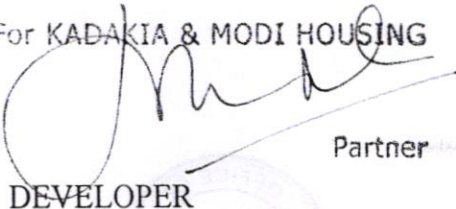 For KADAKIA & MODI HOUSING
Partner
DEVELOPER